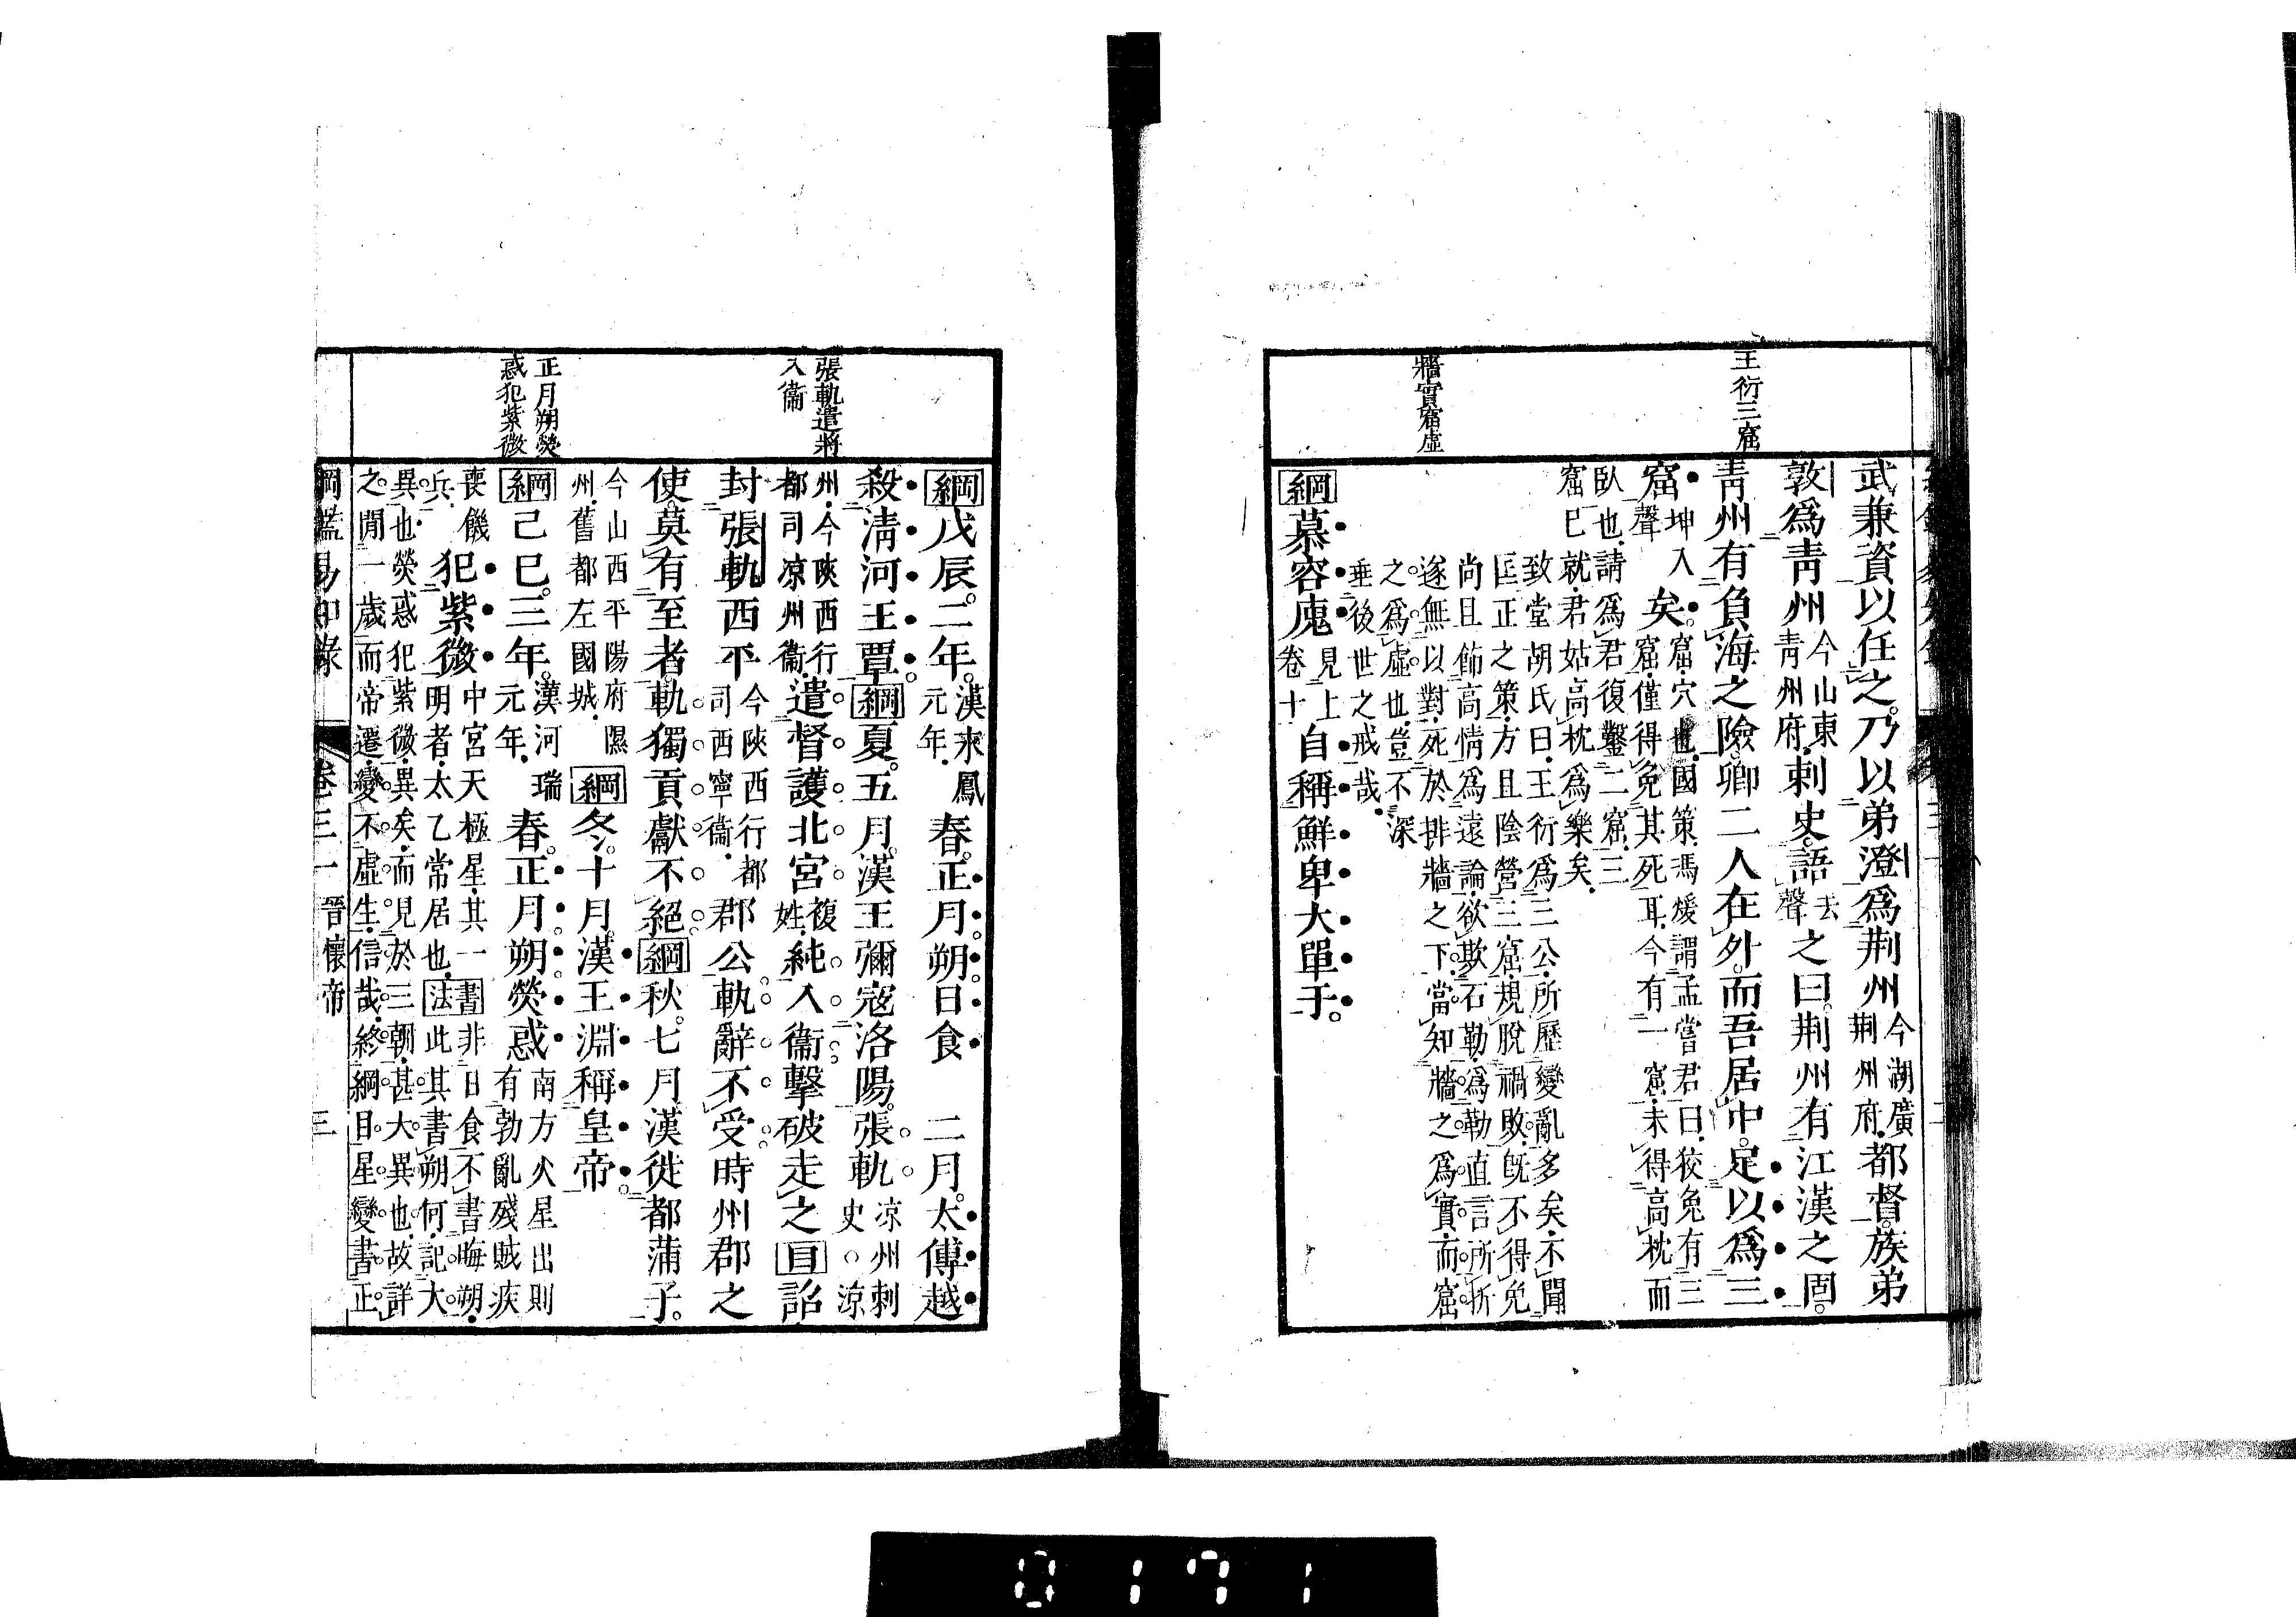 王衍三窟
牆實窟虛
武兼資以任之乃以弟澄爲荆州今湖廣荆州府都督族弟
敦爲青州今山東青州府刺史語去聲之曰荆州有江漢之固
青州有負海之險卿二人在外而吾居中足以爲三
窟坤入聲矣窟窟穴也國策馮煖謂孟嘗君曰狡兔有三窟僅得免其死耳今有一窟未得高枕而
臥也請爲君復鑿二窟三窟已就君姑高枕爲樂矣
致堂胡氏曰王衍爲三公所歷變亂多矣不聞
匡正之策方且陰營三窟規脫禍敗旣不得免
尚且飾高情爲遠論欲欺石勒爲勒直言所折
遂無以對死於排牆之下當知牆之爲實而窟
之爲虛也豈不深
垂後世之戒哉
綱慕容廆見上卷十自稱鮮卑大單于
張軌遣將
入衞
正月朔熒
惑犯紫微
綱戊辰二年漢永鳳元年春正月朔日食 二月太傅越
殺淸河王覃綱夏五月漢王彌寇洛陽張軌凉州刺史○涼
州今陝西行都司凉州衞遣督護北宮複姓純入衞擊破走之目詔
封張軌西平今陝西行都司西寧衞郡公軌辭不受時州郡之
使莫有至者軌獨貢獻不絕綱秋七月漢徙都蒲子
今山西平陽府隰州舊都左國城綱冬十月漢王淵稱皇帝
綱己巳三年漢河瑞元年春正月朔熒惑南方火星出則有勃亂殘賊疾
喪饑兵犯紫微中宮天極星其一明者太乙常居也書法非日食不書晦朔此其書朔何記大
異也熒惑犯紫微異矣而見於三朝甚大異也故詳
之閒一歲而帝遷變不虛生信哉終綱目星變書正
綱鑑易知錄 卷三一 晉懷帝 三
0171